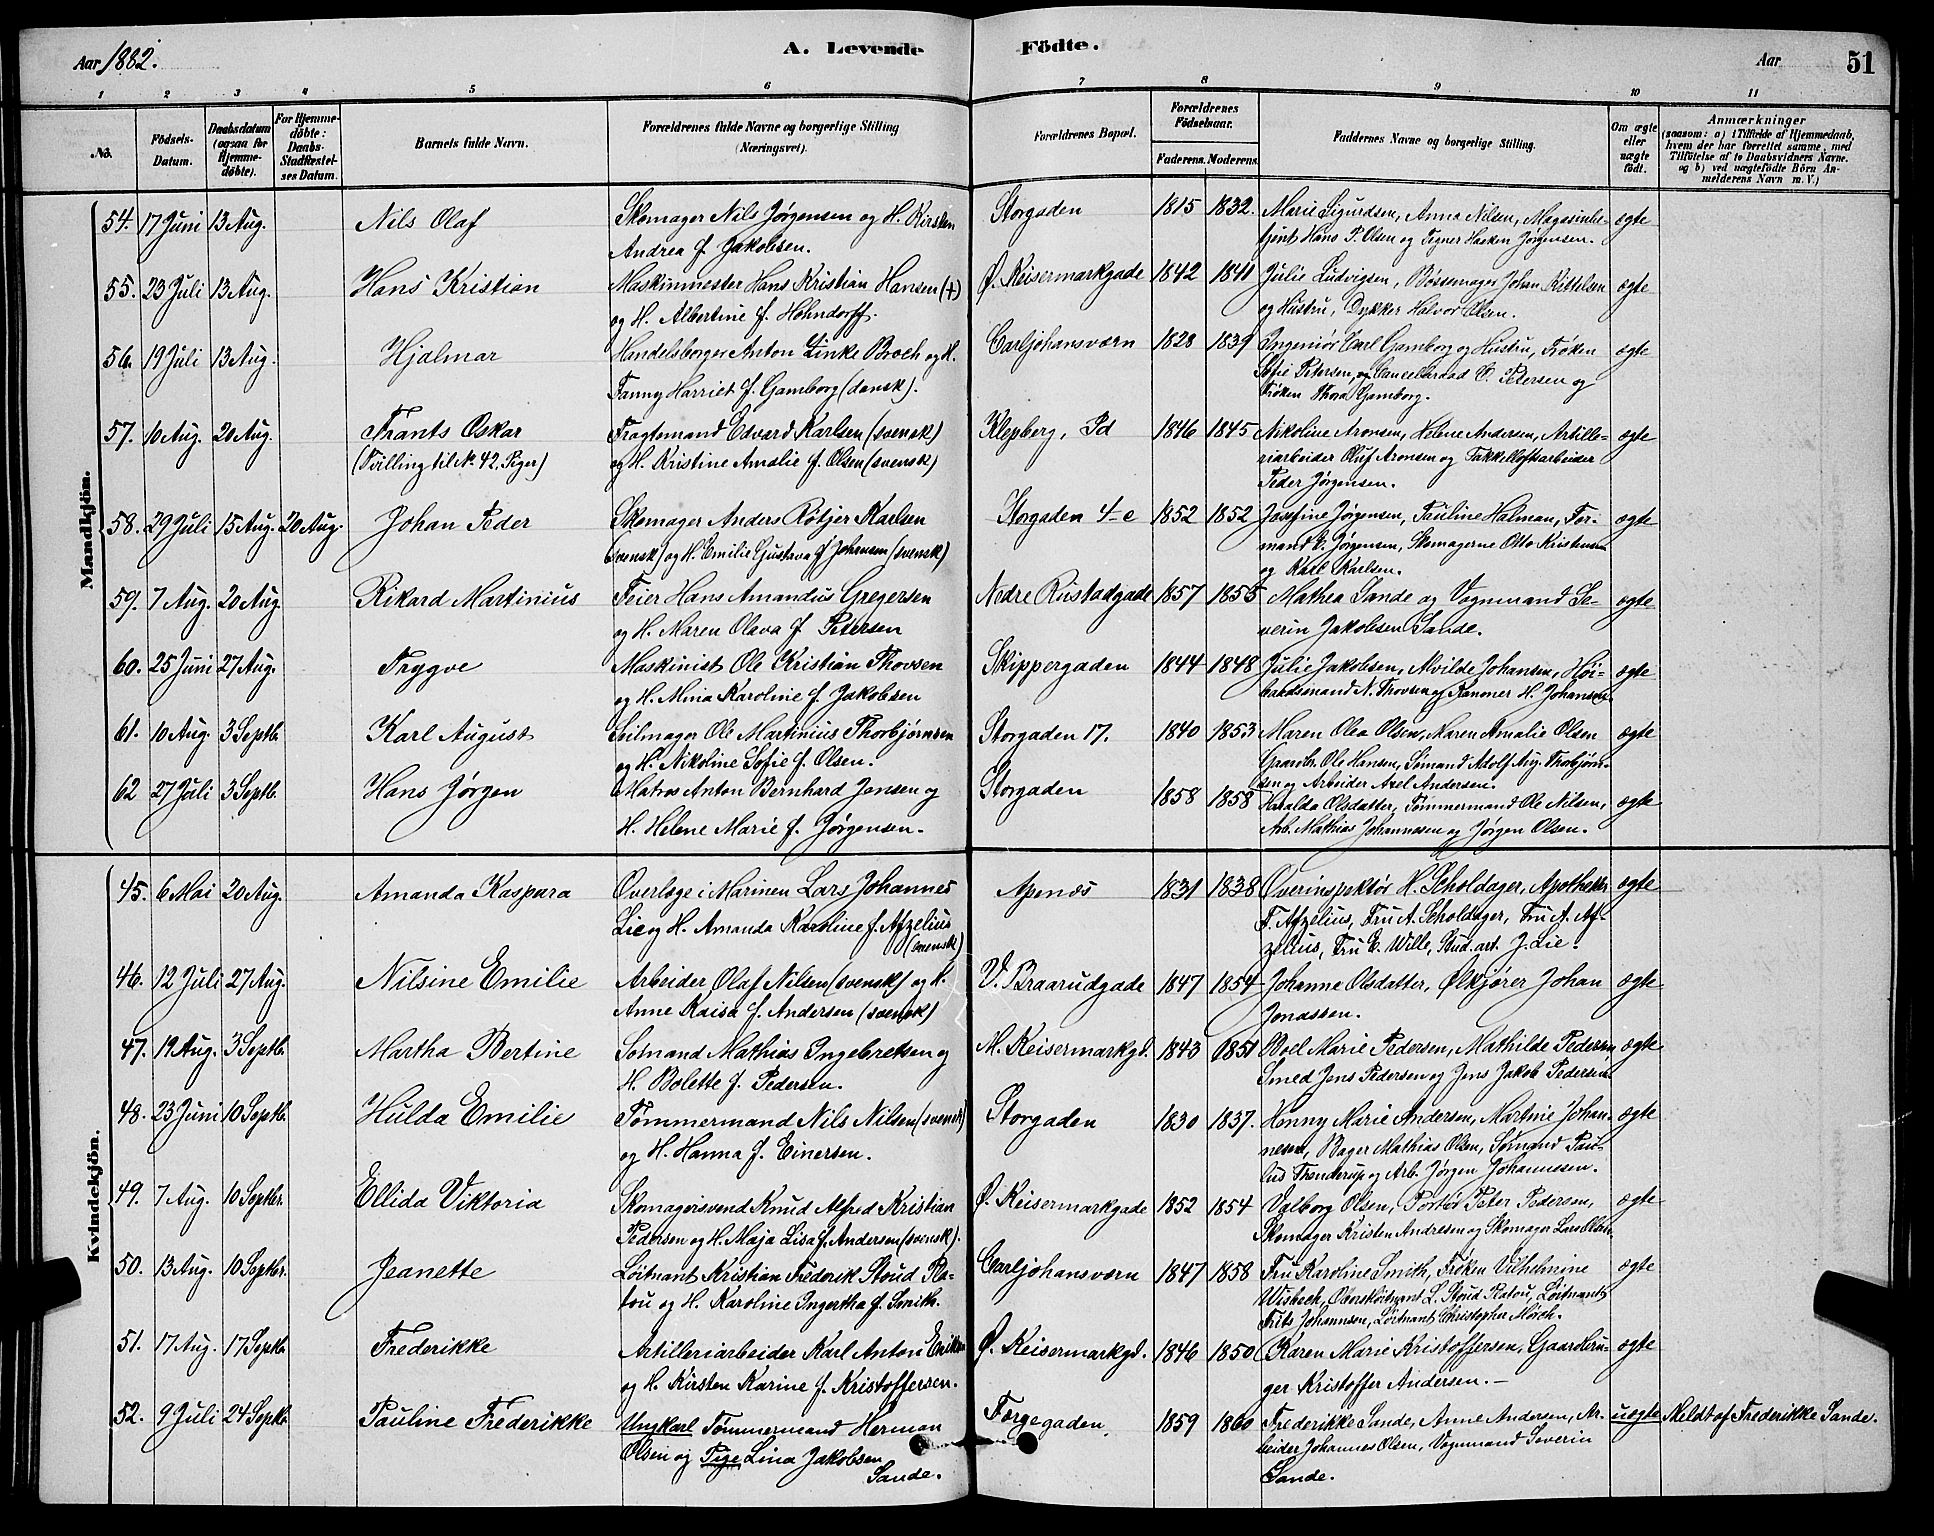 Aar 1882.
A. Levende Födte.
Aar
51
1 2 3 4 5 6 7 8 9 10 11
No.
Födsels-Datum.
Daabsdatum (ogsaa for Hjemmedöbte).
For Hjemmedöbte: Daabs-Stadfæstelses Datum.
Barnets fulde Navn.
Forældrenes fulde Navne og borgerlige Stilling (Næringsvei).
Forældrenes Bopæl.
Forældrenes Födselsaar.
Faderens. Moderens.
Faddernes Navne og borgerlige Stilling.
Om ægte eller uægte födt.
Anmærkninger
(saasom: a) i Tilfælde af Hjemmedaab, hvem der har forrettet samme, med Tilföielse af to Daabsvidners Navne, og b) ved uægtefödte Börn Anmelderens Navn m. V.)
Mandkjön.
54. 17 Juni 13 Aug. Nils Olaf Skomager Nils Jørgensen og H. Kirsten Storgaden 1815 1832. Marie Sigurdsen, Anna Nilsen, Magasinbe- ægte
Andrea f. Jakobsen. tjent Hans P. Olsen og Tegner Haakon Jørgensen.
55. 23 Juli 13 Aug. Hans Kristian Maskinmester Hans Kristian Hansen (+) Ø. Keisermarkgade 1842 1841 Julie Ludvigsen, Bøssemager Johan Kittelsen ægte
og H. Albertine f. Hohndorff. og Hustru, Dykker Halvor Olsen.
56. 19 Juli 13 Aug. Hjalmar Handelsborger Anton Zinke Broch og H. Carljohansværn 1828 1839 Ingeniør Carl Gamborg og Hustru, Frøken ægte
Fanny Harriet f. Gamborg (dansk). Sofie Petersen, og Cancelliraad C. Petersen og
Frøken Thora Gamborg.
57. 10 Aug. 20 Aug. Frants Oskar Fragtemand Edvard Karlsen (svensk) Klepberg, Id 1846 1845 Nikoline Aronsen, Helene Andersen, Artille- ægte
(Tvilling til No. 42. Piger) og H. Kristine Amalie f. Olsen (svensk) riarbeider Oluf Aronsen og Takkelloftsarbeider
Peder Jørgensen.
58. 29 Juli 15 Aug. 20 Aug. Johan Peder Skomager Anders Rötjer Karlsen Storgaden 4-e 1852 1852 Josefine Jørgensen, Pauline Halman, For- ægte
(svensk) og H. Emilie Gustava f. Johansen (svensk) mand C. Jørgensen, Skomagerne Otto Kristensen
og Karl Karlsen.
59. 7 Aug. 20 Aug. Rikard Martinius Feier Hans Amandus Gregersen Nedre Rustadgade 1857 1855 Mathea Sande og Vognmand Se- ægte
og H. Maren Olava f. Petersen verin Jakobsen Sande.
60. 25 Juni 27 Aug. Trygve Maskinist Ole Kristian Thovsen Skippergaden 1844 1848 Julie Jakobsen, Alvilde Johansen, Høi- ægte
og H. Mina Karoline f. Jakobsen baadsmand N. Thovsen og Kanoner H. Johansen
61. 10 Aug. 3 Septb. Karl August Seilmager Ole Martinius Thorbjørnsen Storgaden 17. 1840 1853 Maren Olea Olsen, Maren Amalie Olsen ægte
og H. Nikoline Sofie f. Olsen. Gaardbr. Ole Hansen, Sømand Adolf Aug. Thorbjørn-
sen og Arbeider Axel Andersen.
62 27 Juli 3 Septb. Hans Jørgen Matros Anton Bernhard Jensen og Storgaden 1858 1858 Haralda Olsdatter, Tømmermand Ole Nilsen, ægte
H. Helene Marie f. Jørgensen. Arb. Mathias Johannesen og Jørgen Olsen.
Kvindekjön.
45. 6 Mai 20 Aug. Amanda Kaspara Overlæge i Marinen Lars Johannes Apenæs 1831 1838 Overinspektør H. Scholdager, Apotheker ægte
Lie og H. Amanda Karoline f. Afzelius (svensk) F. Afzelius, Fru A. Scholdager, Fru A. Af-
zelius, Fru E. Wille, Stud. art. J. Lie.
46. 12 Juli 27 Aug. Nilsine Emilie Arbeider Olaf Nilsen (svensk) og H. V. Braarudgade 1847 1854 Johanne Olsdatter, Ølkjører Johan ægte
Anne Kaisa f. Andersen (svensk) Jonassen.
47. 19 Aug. 3 Septb. Martha Bertine Sømand Mathias Ingebretsen og M. Keisermarkgd. 1843 1851 Boel Marie Pedersen, Mathilde Pedersen ægte
H. Bolette f. Pedersen. Smed Jens Pedersen og Jens Jakob Pedersen
48. 23 Juni 10 Septb. Hulda Emilie Tømmermand Nils Nilsen (svensk) Storgaden 1830 1837. Henny Marie Andersen, Martine Johan- ægte
og H. Hanna f. Einersen. nesen, Bager Mathias Olsen, Sømand Pau-
lus Trenderup og Arb. Jørgen Johannesen.
49. 7 Aug. 10 Septbr. Ellida Viktoria Skomagersvend Knud Alfred Kristian Ø. Keisermarkgade 1852 1854 Valborg Olsen, Portør Peter Pedersen, ægte
Pedersen og H. Maja Lisa f. Andersen (svensk). Skomager Kristen Andresen og Skomager Lars Olsen
50. 13 Aug. 10 Septbr. Jeanette Løitnant Kristian Frederik Stoud Pla- Carljohansværn 1847 1858 Fru Karoline Smith, Frøken Vilhelmine ægte
tou og H. Karoline Ingertha f. Smith. Wisbech, Oberstløitnant L. Stoud Platou, Løitnant
Frits Johannsen, Løitnant Christopher Mörch.
51. 17 Aug. 17 Septb. Frederikke Artilleriarbeider Karl Anton Eriksen Ø. Keisermarkgd. 1846 1850 Karen Marie Kristoffersen, Gaardbru- ægte
og H. Kirsten Karine f. Kristoffersen. ger Kristoffer Andersen. -
52. 9 Juli 24 Septb. Pauline Frederikke Ungkarl Tømmermand Herman Forgegaden 1859 1860 Frederikke Sande, Anne Andersen, Ar- uægte Meldt af Frederikke Sande.
Olsen og Pige Lina Jakobsen beider Johannes Olsen, Vognmand Severin
Sande. Sande.